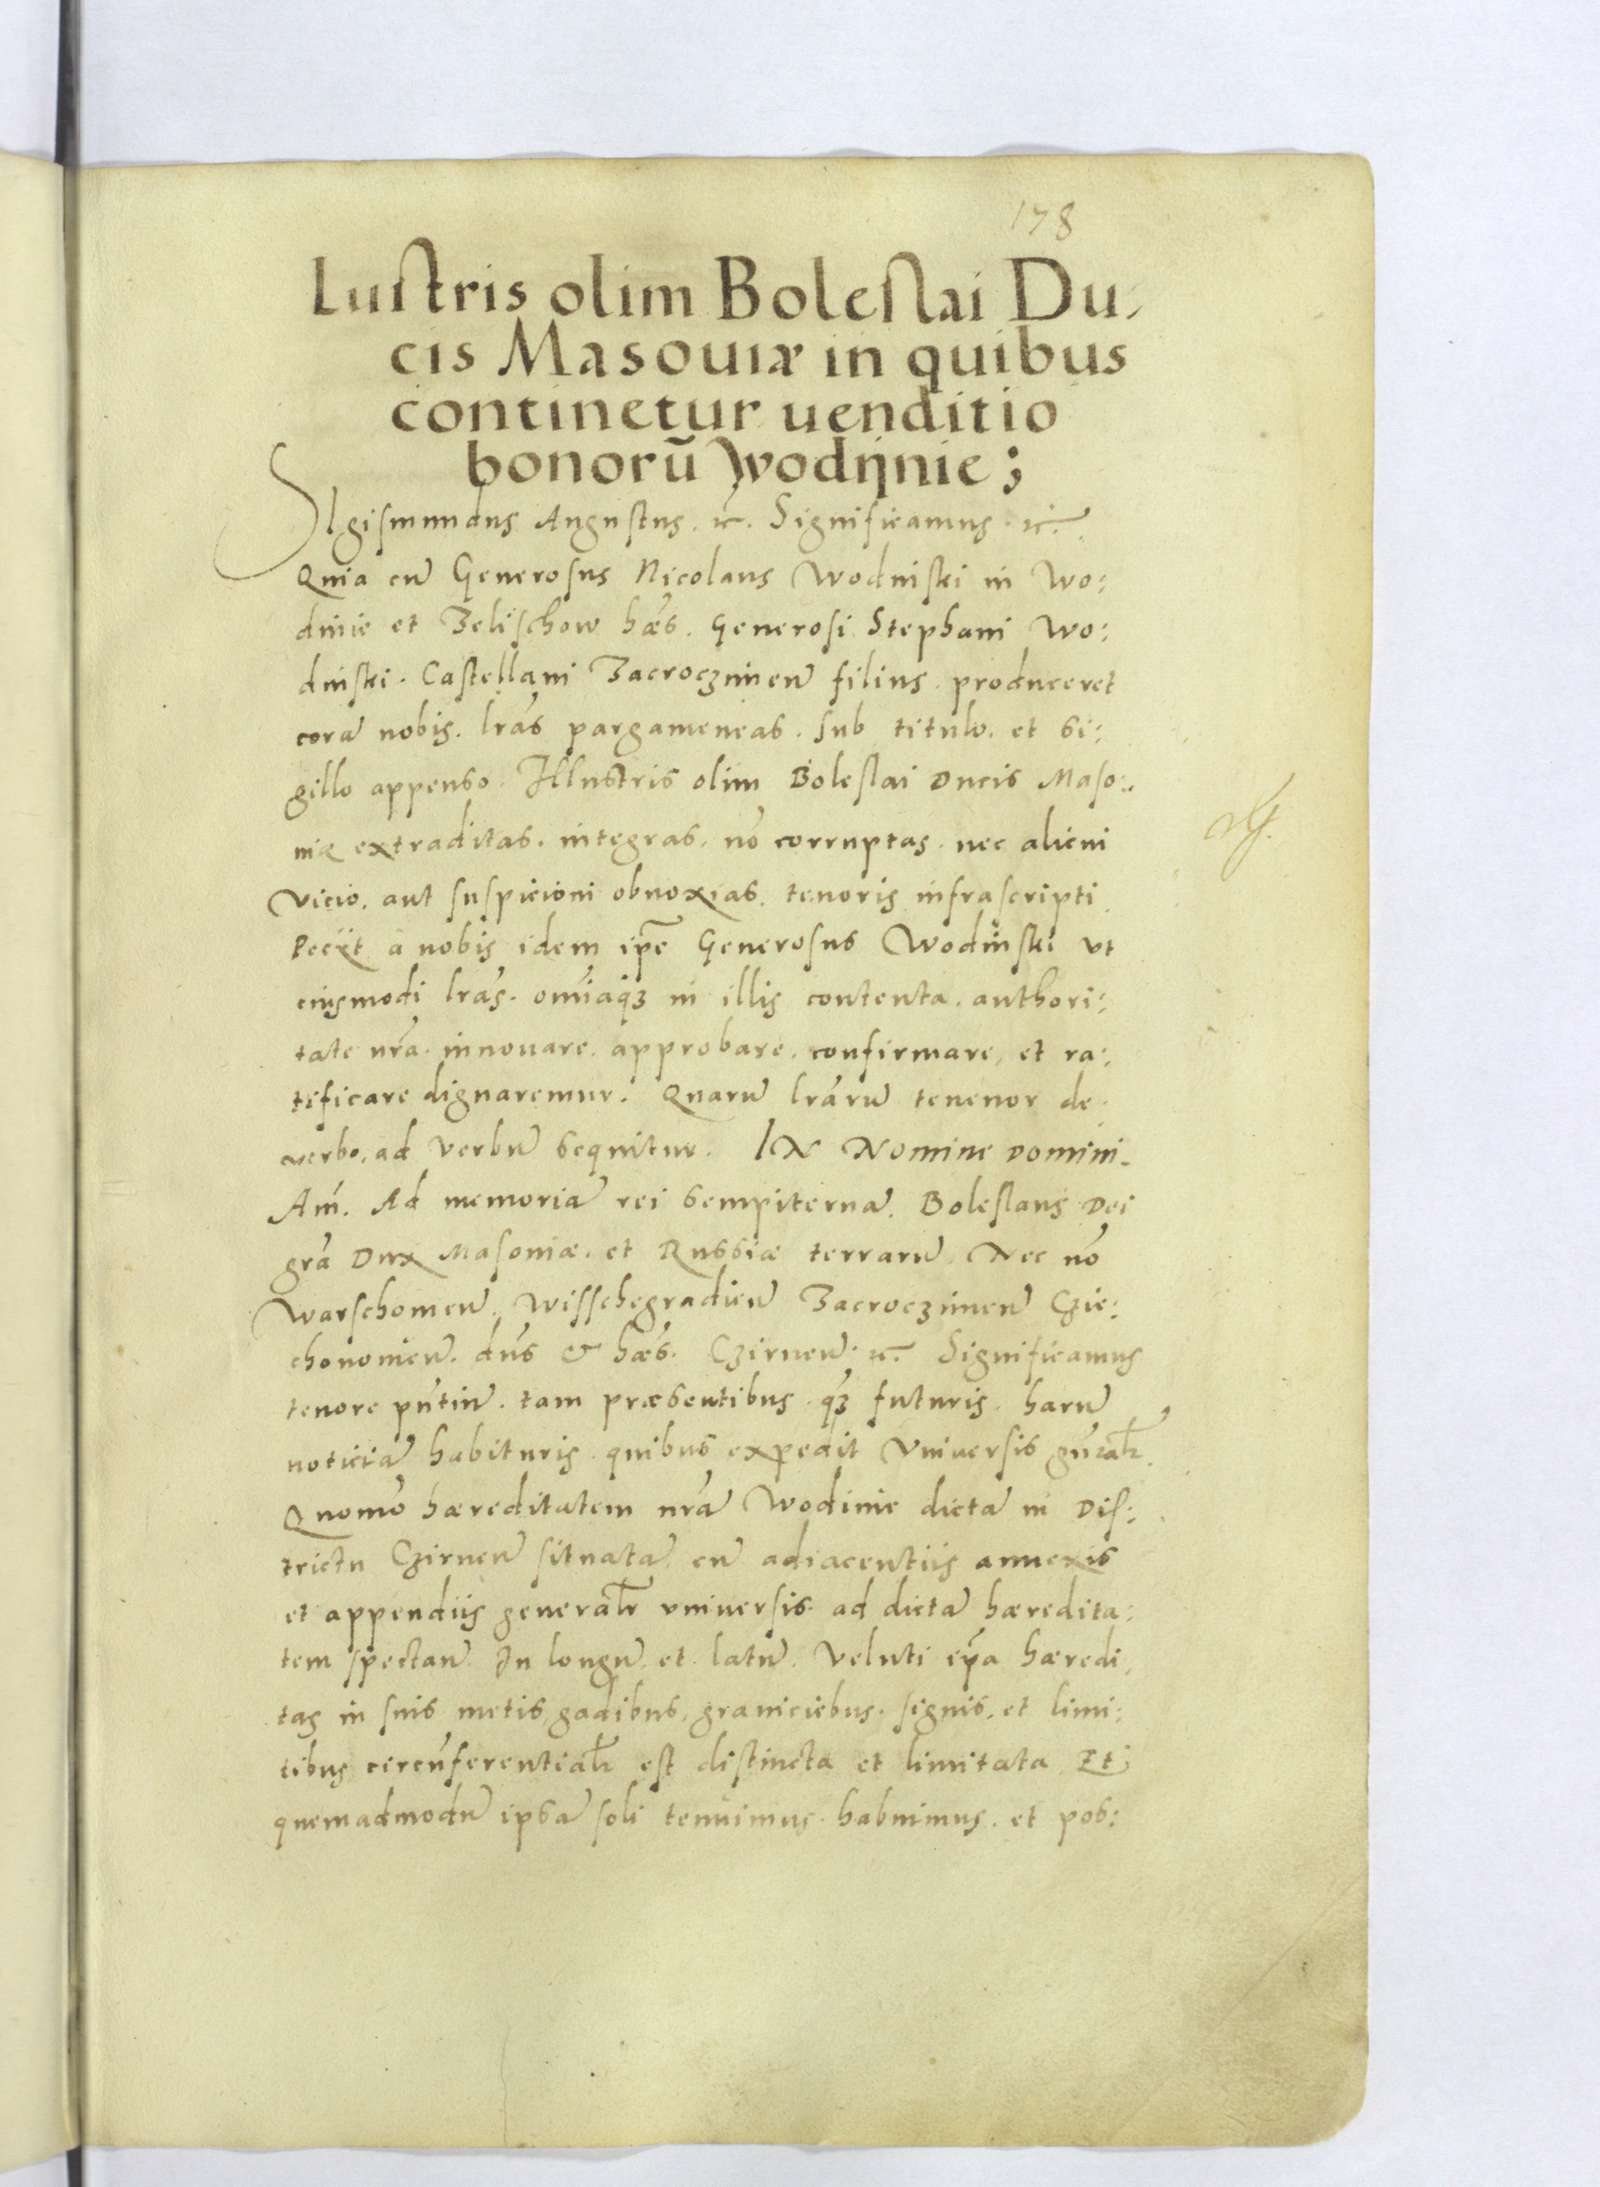 178
Lustris olim Boleslai Du-
cis Masouiæ in quibus
continetur uenditio
bonorū Wodÿnie;
SIgismundus Augustus. etc. Significamus. etc.
Quia cū Generosus Nicolaus Wodinski in Wo:
dinie et Zelischow hæs. Generosi Stephani Wo:
dinski. Castellani Zacroczimeñ filius. produceret
corā nobis. lrãs pargameneas. sub titulo. et si:
gillo appenso. Illustris olim Boleslai Ducis Maso:
uiæ extraditas. integras. nõ corruptas. nec alicui
vicio. aut suspicioni obnoxias. tenoris infrascripti
Peciit à nobis idem ip̃e Generosus Wodinski vt
eiusmodi lrãs. omĩaqꝫ in illis contenta. authori:
tate nrã. innouare. approbare. confirmare, et ra:
tificare dignaremur. Quarū lrãrū tenenor de
verbo. ad verbū sequitur. IN Nomine Domini.
Am̃. Ad memoriā rei sempiternā. Boleslaus Dei
grã Dux Masouiæ. et Russiæ terrarū. Nec nõ
Warschouieñ. Wisschegradieñ Zacroczimeñ Czie:
chonouieñ. dñs & hæs. Czirneñ. etc. Significamus
tenore pñtiū. tam præsentibus. qꝫ futuris. harū
noticiā habituris. quibus expedit Vniuersis gñralr̃.
Quomõ hæreditatem nrã Wodinie dictā in Dis:
trictu Czirneñ situatā. cū adiacentiis annexis
et appendiis generalr̃ vniuersis. ad dictā hæredita:
tem spectañ. In longū. et latū. Veluti ip̃a hæredi:
tas in suis metis, gadibus, graniciebus. signis. et limi:
tibus circũferentialr̃ est distincta et limitata. Et
quemadmodū ipsā soli tenuimus. habuimus. et pos: